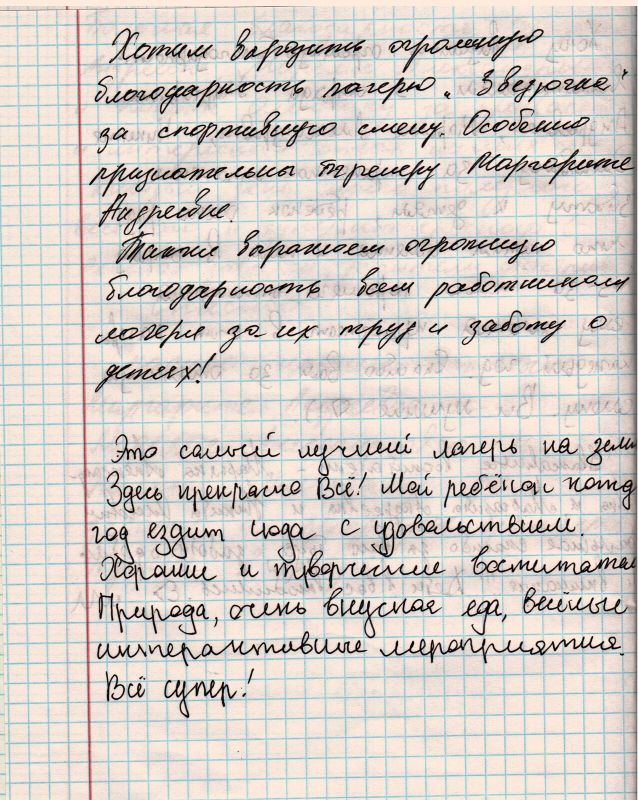 Хотим выразить огромную
благодарность лагерю „Звездочка"
за спортивную смену. Особенно
признательны тренеру Маргарите
Андреевне.
Также выражаем огромную
благодарность всем работникам
лагеря за их труд и заботу о
детях!
Это самый лучший лагерь на земл
Здесь прекрасно Всё! Мой ребёнок кажд
год ездит сюда с удовольствием.
Хорошие и творческие воспитател
Природа, очень вкусная еда, весёлые
интерактивные мероприятия.
Всё супер!